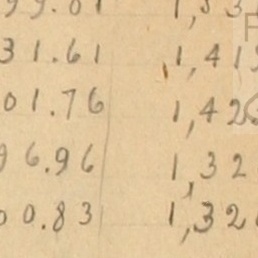 99.01 1,33
31.61 1,413
01.76 1,426
96.96 1,32
00.83 1,326